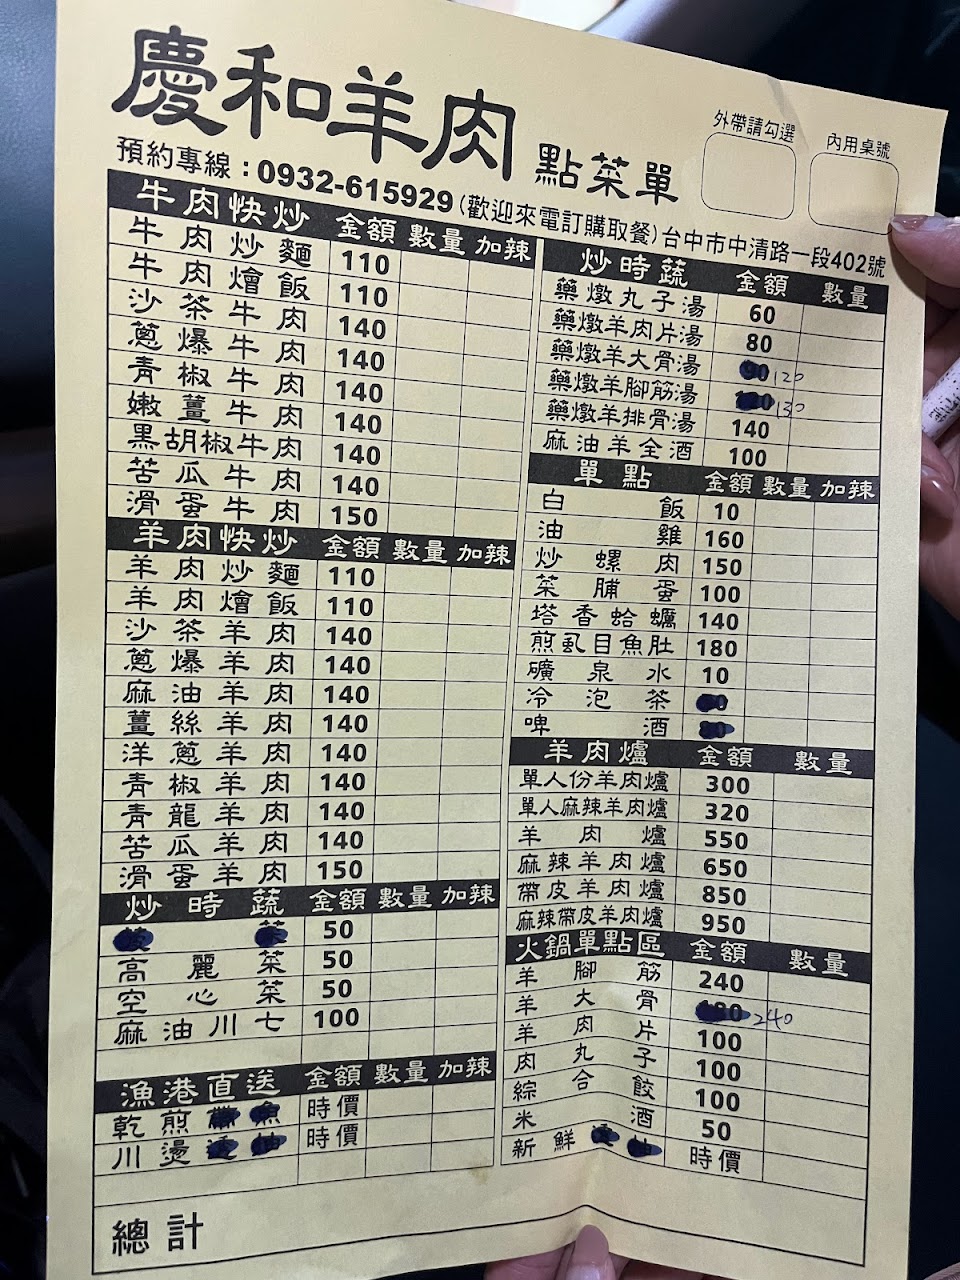 慶和羊肉 點菜單
外帶請勾選
內用桌號
預約專線：0932-615929(歡迎來電訂購取餐)台中市中清路一段402號
牛肉快炒 金額 數量 加辣
牛肉炒麵 110
牛肉燴飯 110
沙茶牛肉 140
蔥爆牛肉 140
青椒牛肉 140
嫩薑牛肉 140
黑胡椒牛肉 140
苦瓜牛肉 140
滑蛋牛肉 150
羊肉快炒 金額 數量 加辣
羊肉炒麵 110
羊肉燴飯 110
沙茶羊肉 140
蔥爆羊肉 140
麻油羊肉 140
薑絲羊肉 140
洋蔥羊肉 140
青椒羊肉 140
青龍羊肉 140
苦瓜羊肉 140
滑蛋羊肉 150
炒時蔬 金額 數量 加辣
50
高麗菜 50
空心菜 50
麻油川七 100
漁港直送 金額 數量 加辣
乾煎 時價
川燙 時價
炒時蔬 金額 數量
藥燉丸子湯 60
藥燉羊肉片湯 80
藥燉羊大骨湯 120
藥燉羊腳筋湯 130
藥燉羊排骨湯 140
麻油羊全酒 100
單點 金額 數量 加辣
白飯 10
油雞 160
炒螺肉 150
菜脯蛋 100
塔香蛤蠣 140
煎虱目魚肚 180
礦泉水 10
冷泡茶
啤酒
羊肉爐 金額 數量
單人份羊肉爐 300
單人麻辣羊肉爐 320
羊肉爐 550
麻辣羊肉爐 650
帶皮羊肉爐 850
麻辣帶皮羊肉爐 950
火鍋單點區 金額 數量
羊腳筋 240
羊大骨 240
羊肉片 100
肉丸子 100
綜合餃 100
米酒 50
新鮮 時價
總計